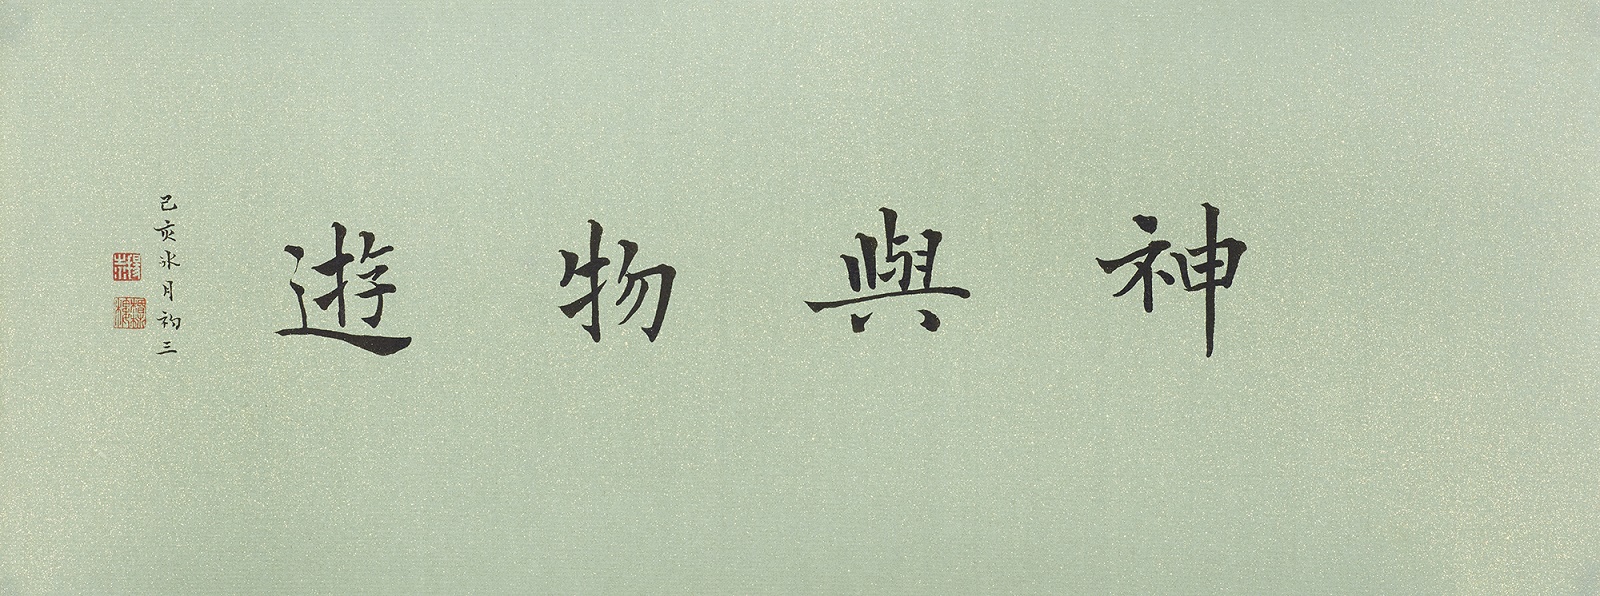 神與物遊
己亥冰月初三